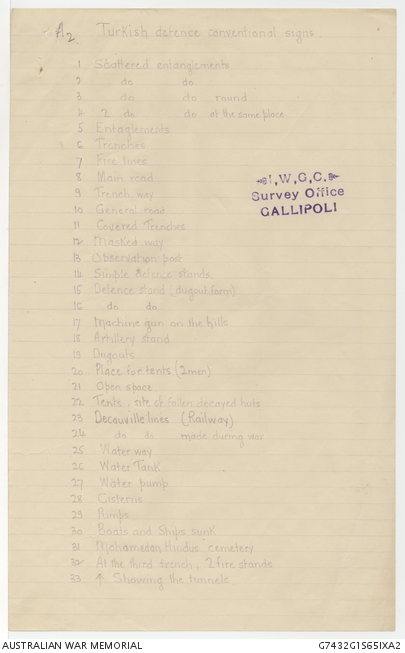 A2 Turkish defence conventional signs
1 Scattered entanglements
2 do do
3 do do round
4 2 do do at the same place
5 Entaglements
6 Trenches
7 Fire lines
8 Main road
9 Trench way
10 General road
11 Covered Trenches
12 Masked way
13 Observation post
14 Simple defence stands
15 Defence stand (dugout form)
16 do do
17 Machine gun on the hills
18 Artillery stand
19 Dugouts
20 Place for tents (2 men)
21 Open space
22 Tents, site of fallen decayed huts
23 Decauville lines (Railway)
24 do do made during war
25 Water way
26 Water Tank
27 Water pump
28 Cisterns
29
30 Boats and Ships sunk
31 Mohamedan Hindus cemetery
32 At the third trench, 2 fire stands
33 ↑ Showing the tunnels
I.W.G.C.
Survey Office
GALLIPOLI
AUSTRALIAN WAR MEMORIAL
G7432G1S65IXA2